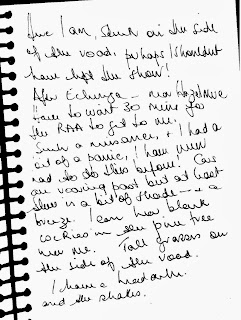 Here I am, stuck on the side
of the road, perhaps I shouldn't
have left the show!
After Echunga – near Hazelmere
Have to wait 30 mins for
the RAA to get to me.
Such a nuisance, + I had a
bit of a panic, I have never
had to do this before! Cars
are roaring past but at least
there is a bit of shade – + a
breeze. I can hear black
cockies in the pine tree
near me. Tall grasses on
the side of the road.
I have a headache
and the shakes.